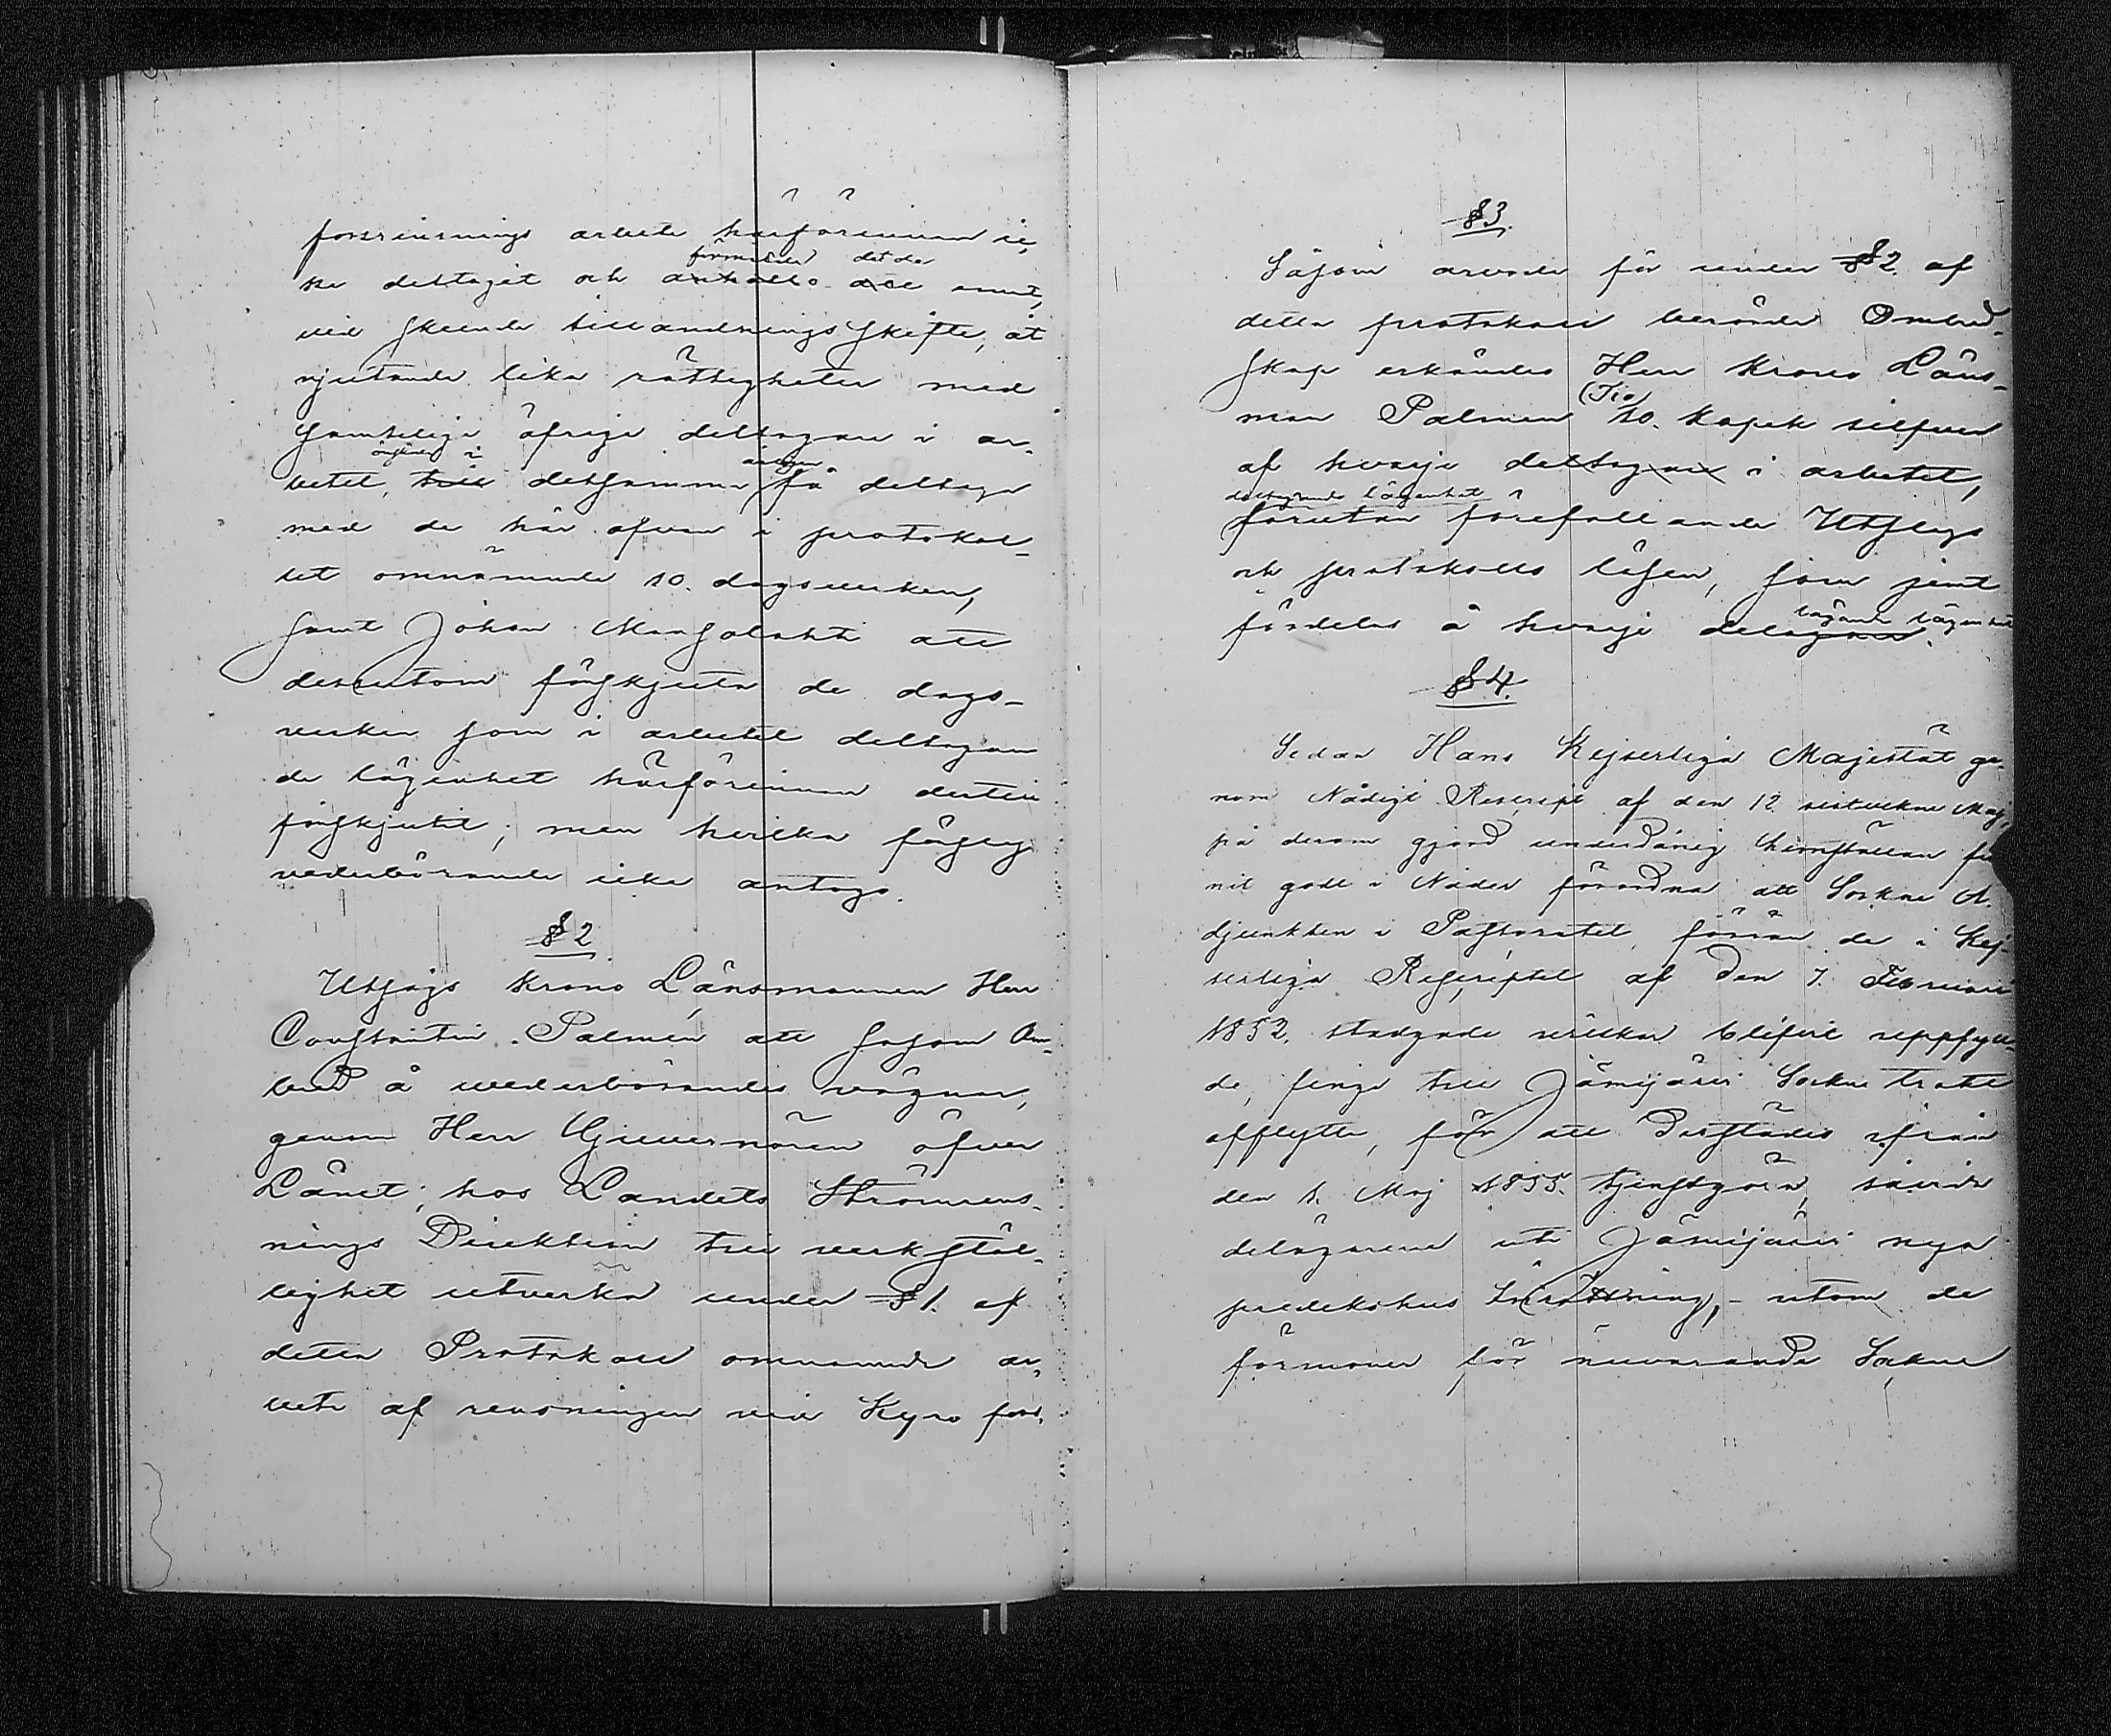 forsrensnings arbete härförinnan ic-
förmälde det de
ke deltagit och anhålls att emot,
vid skeende tillandnings skifte, åt
njutande lika rättigheter med
samtelige öfrige deltagare i ar-
betet, till detsamma få deltaga
med de här ofvan i protokol-
let omnämnde 10. dagsverken,
samt Johan Mansolahti att
dessutom förskjuta de dags-
verken som i arbetet deltagan
de lägenhet härförinnan dertill
förskjutit; men hvilka förslag
vederbörande icke antogs.
§ 2
Utsågs Krono Länsmannen Herr
Constantin Palmén att såsom Om-
bud å wederbörandes vägnar,
genom Herr Guvernören öfver
Länet, hos Landets Strömrens-
nings Direktion till verkstäl-
lighet utverka under § 1. af
detta Protokoll omnämnde ar-
bete af rensningen vid Kyro fors.
§ 3.
Såsom arvode för under § 2. af
detta protokoll berörde Ombud-
skap erkändes Herr Krono Läns-
(Tio)
man Palmen 10. kopek silfver
af hvarje deltagare i arbetet,
deltagande lägenhet
förutan förefallande Utslags
och protokolls lösen, som jemt
tagande lägenhet
fördelas å hvarje delagare.
§ 4.
Sedan Hans Kejserliga Majestät ge-
nom Nådigt Rescript af den 12 sistvekne Maj,
på derom gjord underdånig hemställan fun
nit godt i Nåder förordna att Sockne A-
djunkten i Pastoratet, förrän de i Kej-
serliga Rescriptet af den 7. Februari
1852. stadgade vilkor blifvit uppfyll-
de, finge till Jämijärvi Sockne trakt
afflytta, för att derstädes ifrån
den 1. Maj 1855. tjenstgöra, såvida
delägarena uti Jämijärvi nya
predikohus Inrättning, - utom de
förmoner för nuvarande Sockne